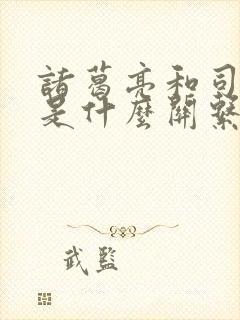 諸葛亮和司
是什麼關繫
武監